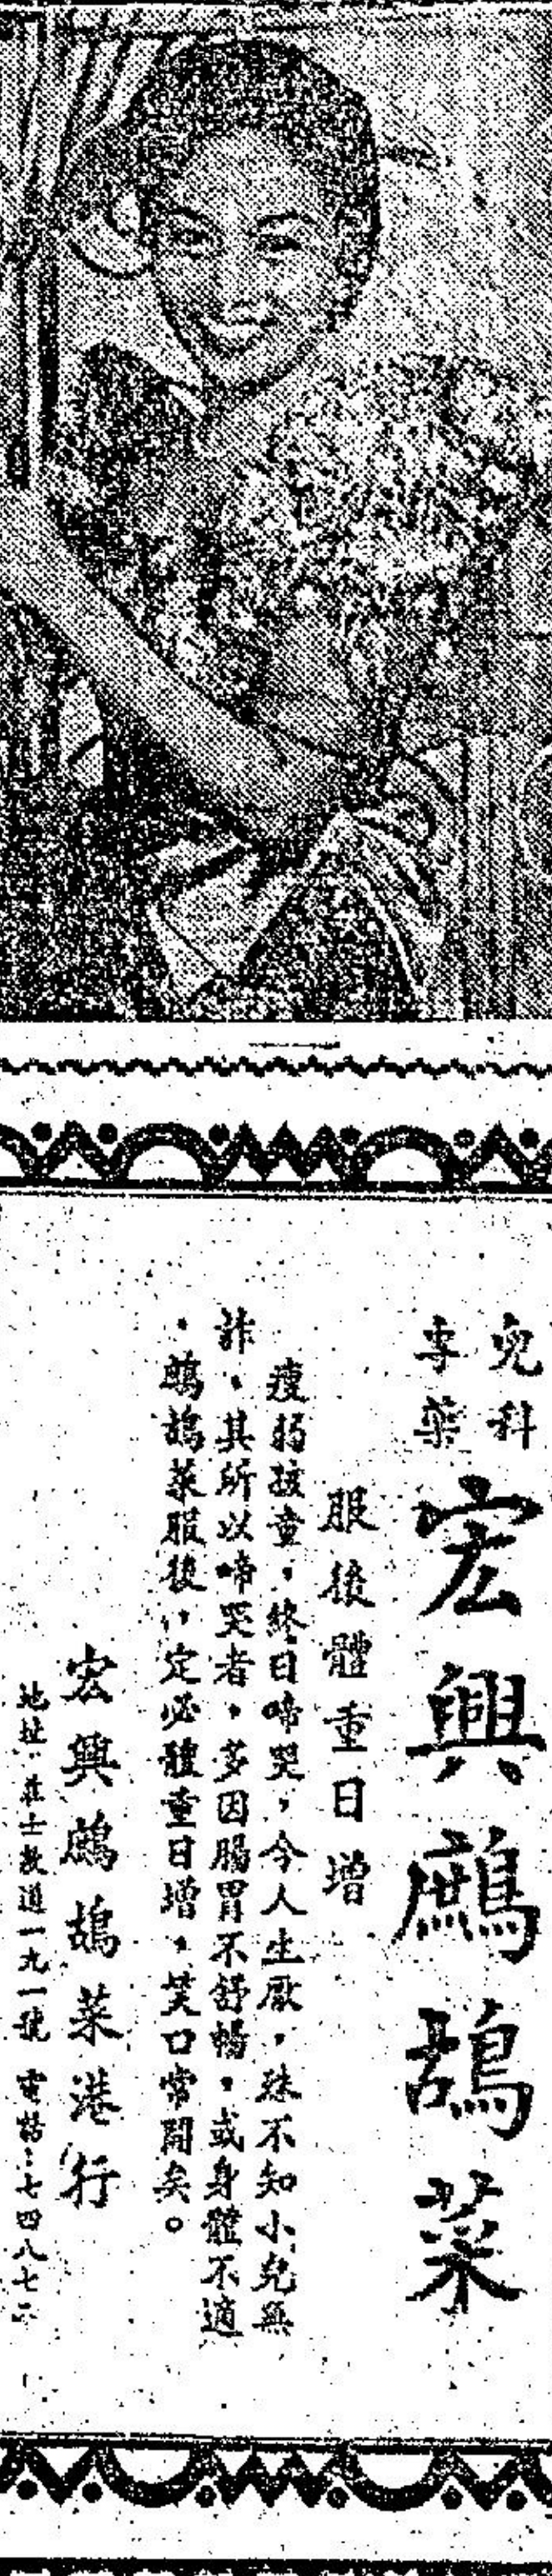 兒科
專藥
宏興鷓鴣菜
服後體重日增
瘦弱孩童，終日啼哭，令人生厭，殊不知小兒無
詐，其所以啼哭者，多因腸胃不舒暢，或身體不適
，鷓鴣菜服後，定必體重日增，笑口常開矣。
宏興鷓鴣菜港行
地址：莊士敦道一九一號 電話：七四八七二